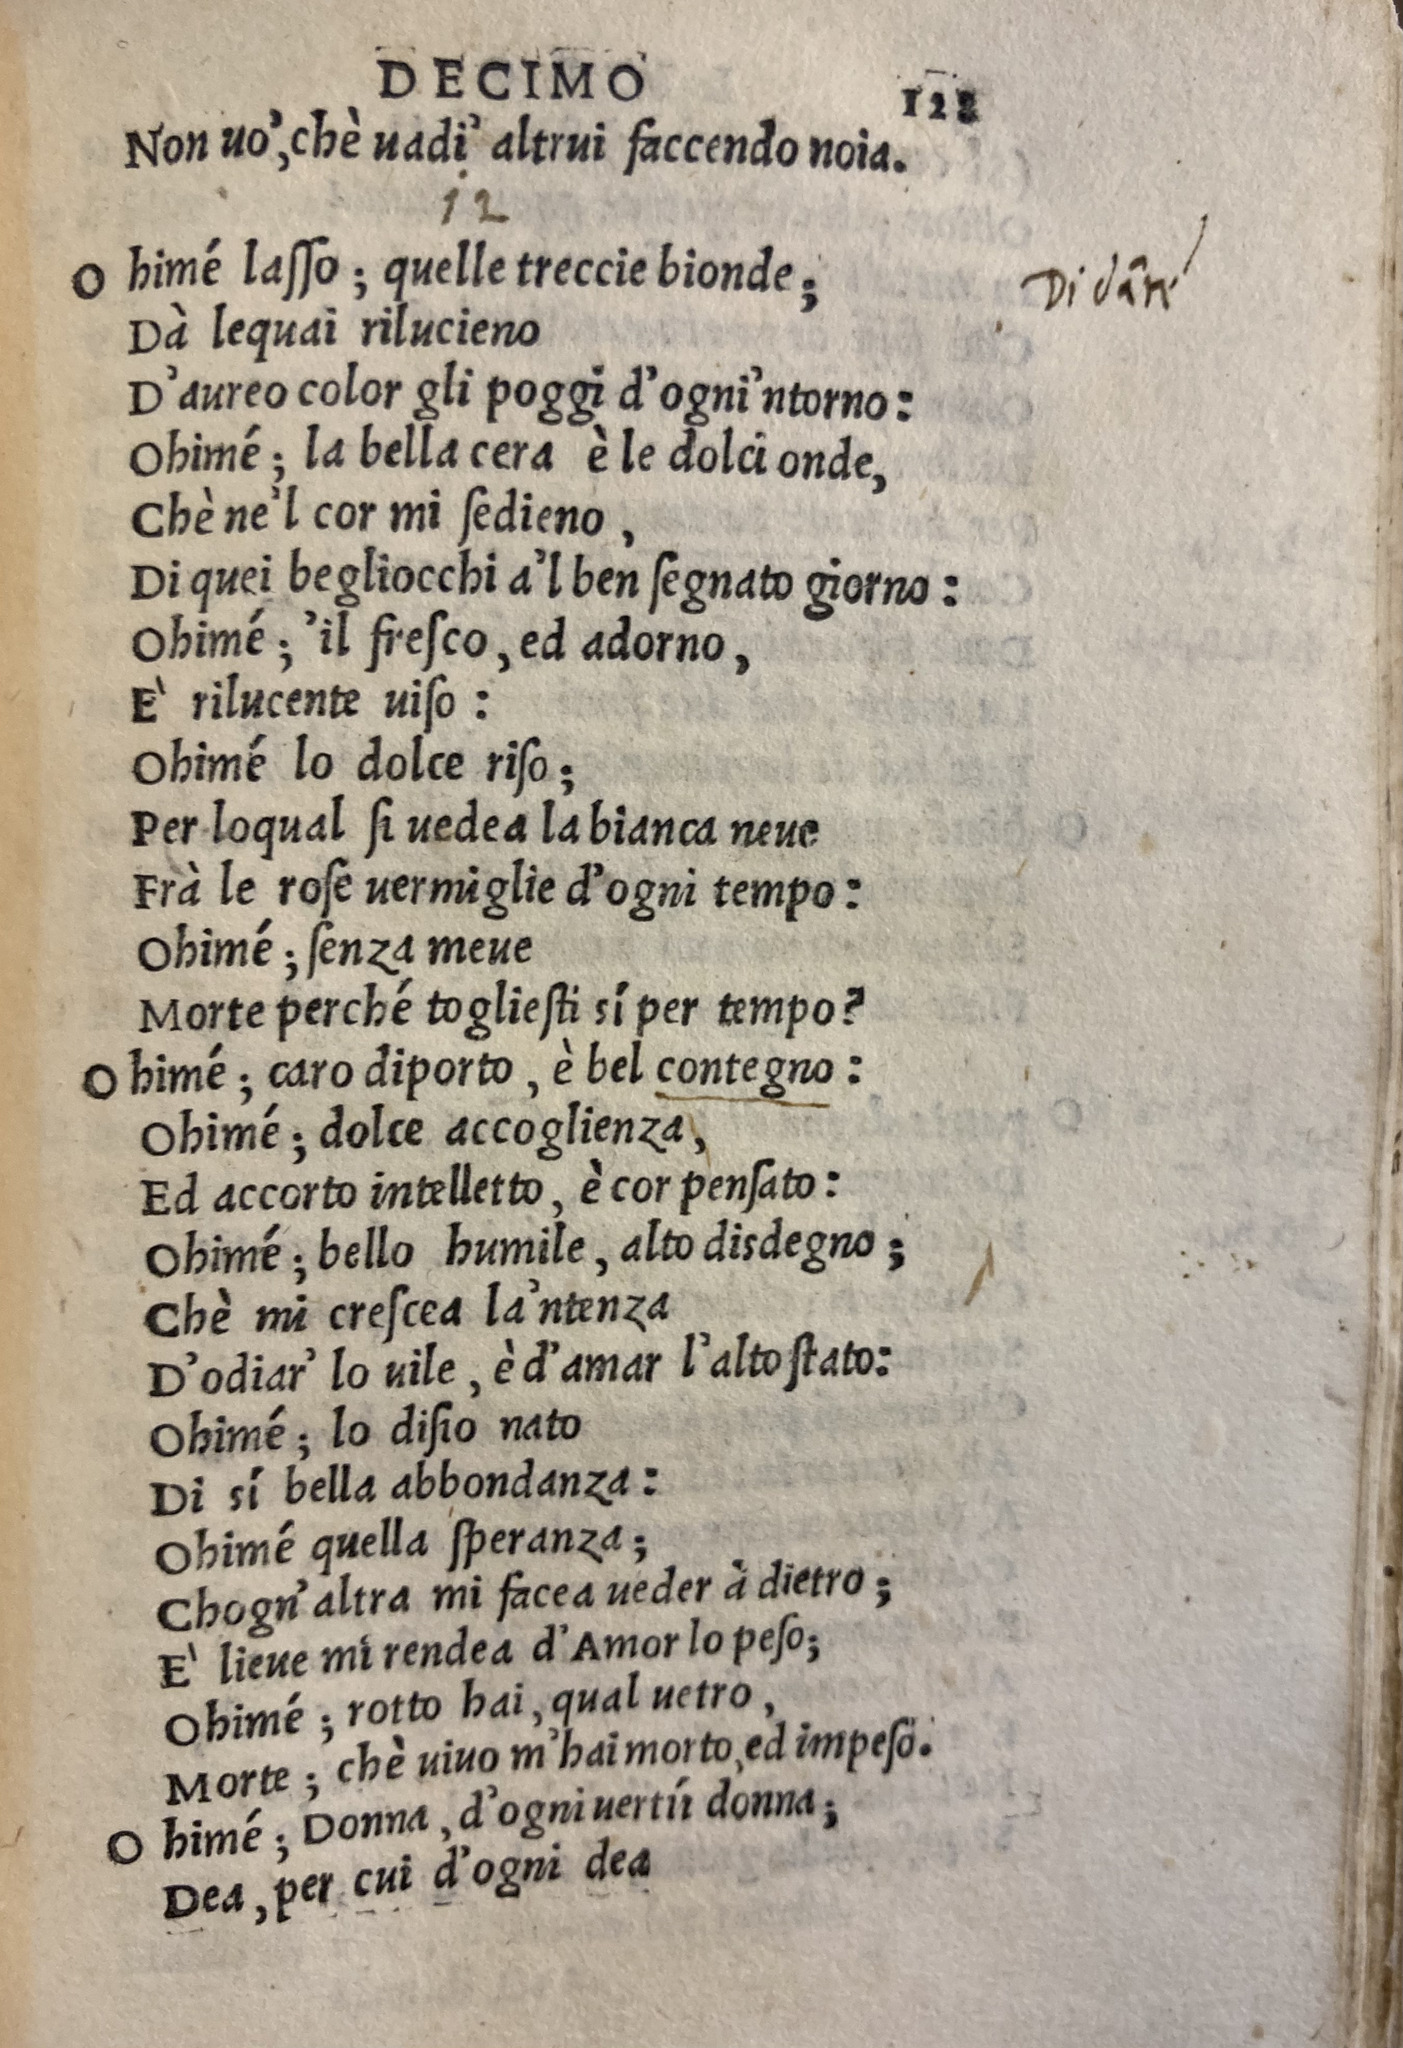 DECIMO
128
Non uo', chè uadi' altrui faccendo noia.
12
Ohimé lasso; quelle treccie bionde;
Di dāte
Dà lequai rilucieno
D'aureo color gli poggi d'ogni'ntorno:
Ohimé; la bella cera è le dolci onde,
Chè ne'l cor mi sedieno,
Di quei begliocchi a'l ben segnato giorno:
Ohimé; 'il fresco, ed adorno,
E' rilucente uiso:
Ohimé lo dolce riso;
Per loqual si uedea la bianca neue
Frà le rose uermiglie d'ogni tempo:
Ohimé; senza meue
Morte perché togliesti sí per tempo?
Ohimé; caro diporto, è bel contegno:
Ohimé; dolce accoglienza,
Ed accorto intelletto, è cor pensato:
Ohimé; bello humile, alto disdegno;
Chè mi crescea la'ntenza
D'odiar' lo uile, è d'amar l'alto stato:
Ohimé; lo disio nato
Di sí bella abbondanza:
Ohimé quella speranza;
Chogn'altra mi facea ueder à dietro;
E' lieue mi rendea d'Amor lo peso;
Ohimé; rotto hai, qual uetro,
Morte; chè uiuo m'hai morto, ed impeso.
Ohimé; Donna, d'ogni uertú donna;
Dea, per cui d'ogni dea